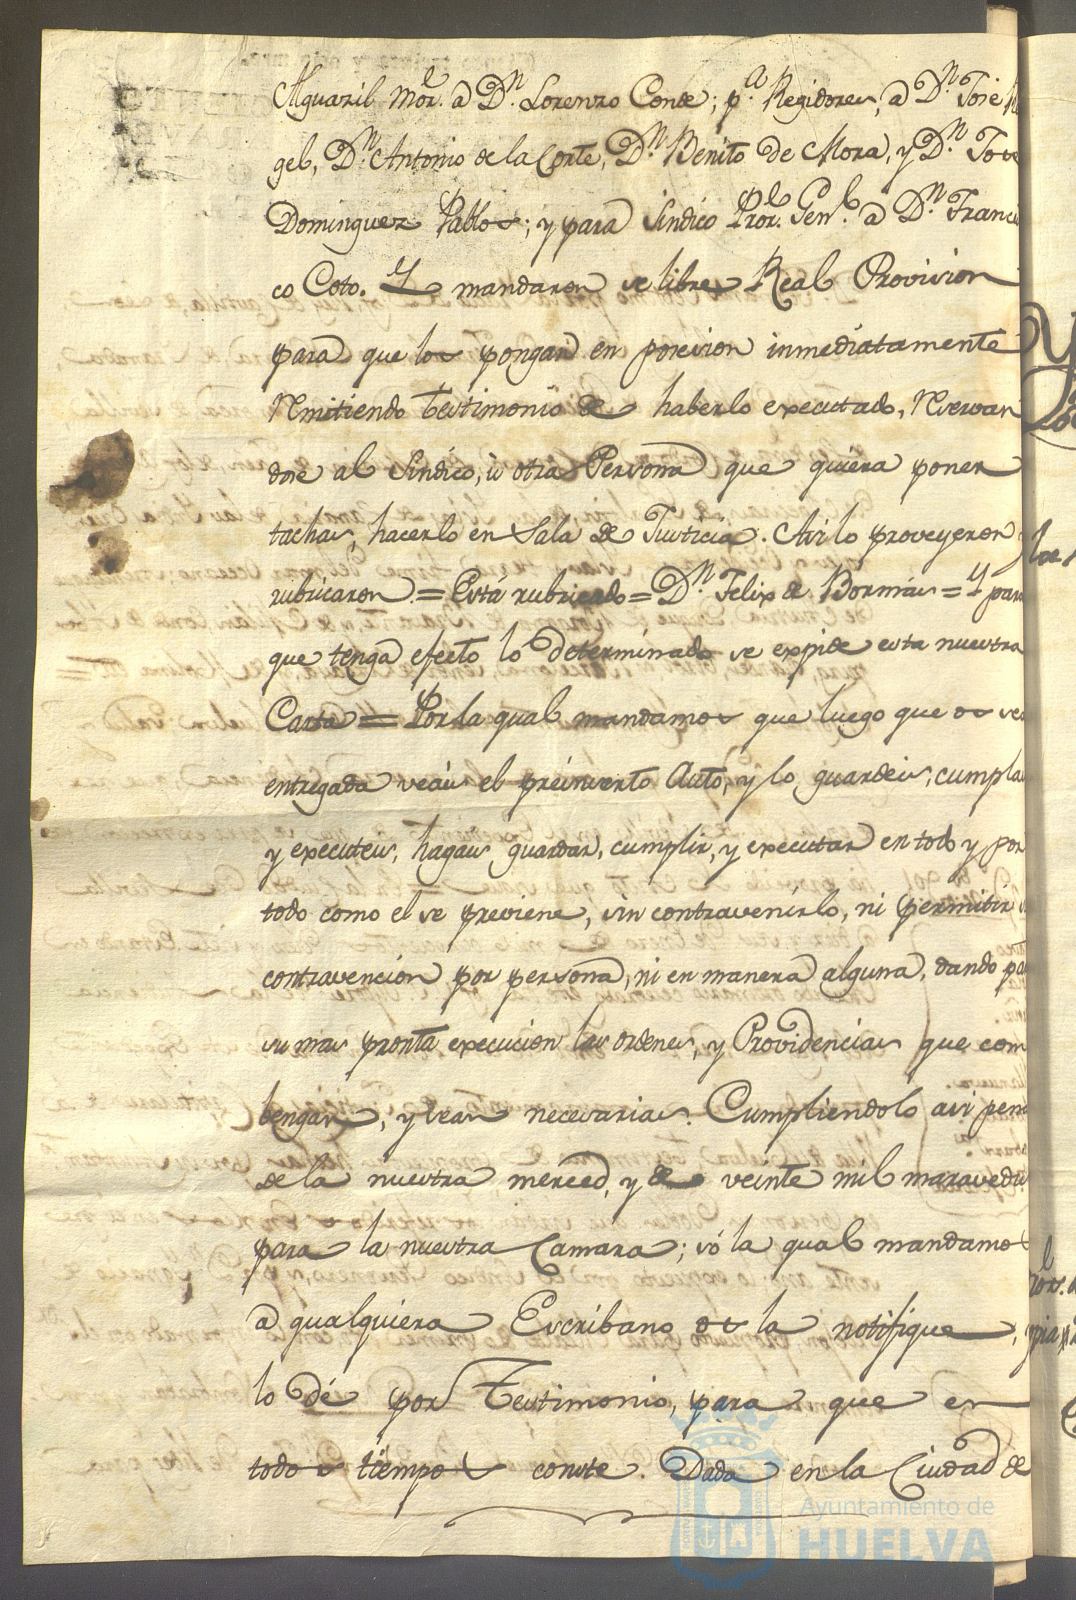 Alguazil Mor. a Dn. Lorenzo Conde; pa. Regidores, a Dn. José
gel, Dn. Antonio de la Corte, Dn. Benito de Mora, y Dn. Jose
Dominguez Pablos; y para Sindico Pror. Genl. a Dn. Francis
co Coto. Y mandaron se libre Real Provision
para que los pongan en posesion inmediatamente
Remitiendo testimonio de haberlo executado, Reservan
dose al Sindico, ù otra Persona que quiera poner
tachas, hacerlo en Sala de Justicia. Asi lo proveyeron y
rubricaron = Está rubricado = Dn. Felix de Bormas = Y para
que tenga efecto lo determinado se expide esta nuestra
Carta = Por la qual mandamos que luego que os sea
entregada veais el preinserto Auto, y lo guardeis, cumplais
y executeis, hagais guardar, cumplir, y executar en todo y por
todo como el se previene, sin contravenirlo, ni permitir su
contravencion por persona, ni en manera alguna, dando para
su mas pronta execucion las ordenes, y Providencias que com
bengan, y sean necesarias. Cumpliendolo asi pena
de la nuestra merced, y de veinte mil maravedis
para la nuestra Camara; só la qual mandamos
a qualquiera Escribano os la notifique, y
lo dé por Testimonio, para que en
todos tiempos conste. Dada en la Ciudad de
Ayuntamiento de
HUELVA